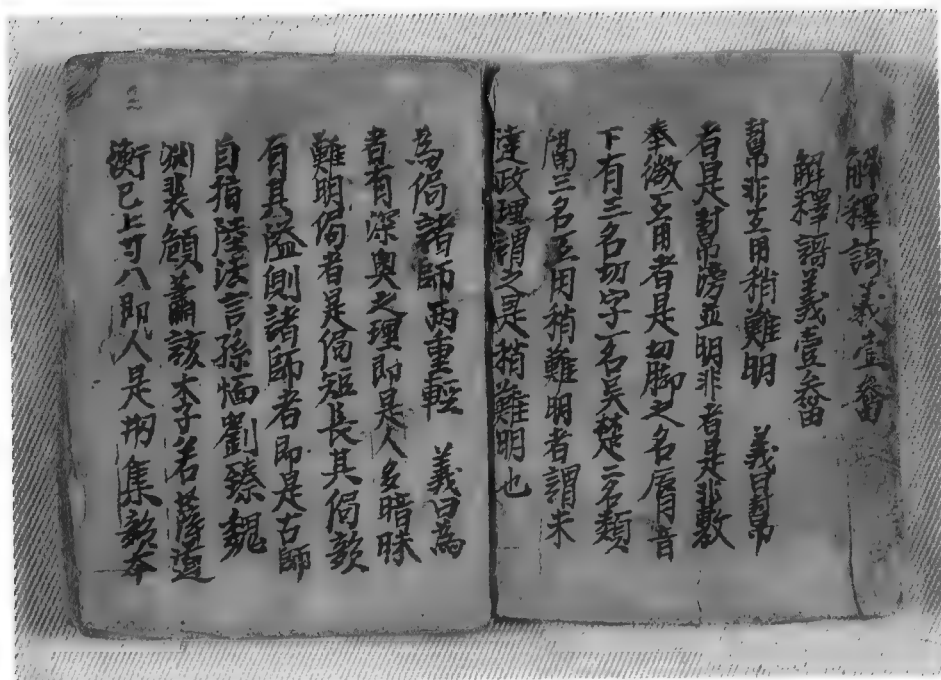 解釋謌義壹畚
解釋謌義壹畚
幫非互用稍難明　義曰幫
者是封帛滂並明非者是非敷
奉微互用者是切脚之名唇音
下有三名切字一名吳楚二名類
隔三名互用稍難明者謂未
達政理謂之是稍難明也
為侷諸師兩重輕　義曰為
者有深奧之理即是人多暗昧
難明侷者是侷短長其侷韻
有其溢側諸師者即是古師
自指陸法言孫愐劉臻魏
渊裴顧蕭該李若薛道
衡已上可八即人是期集韻本